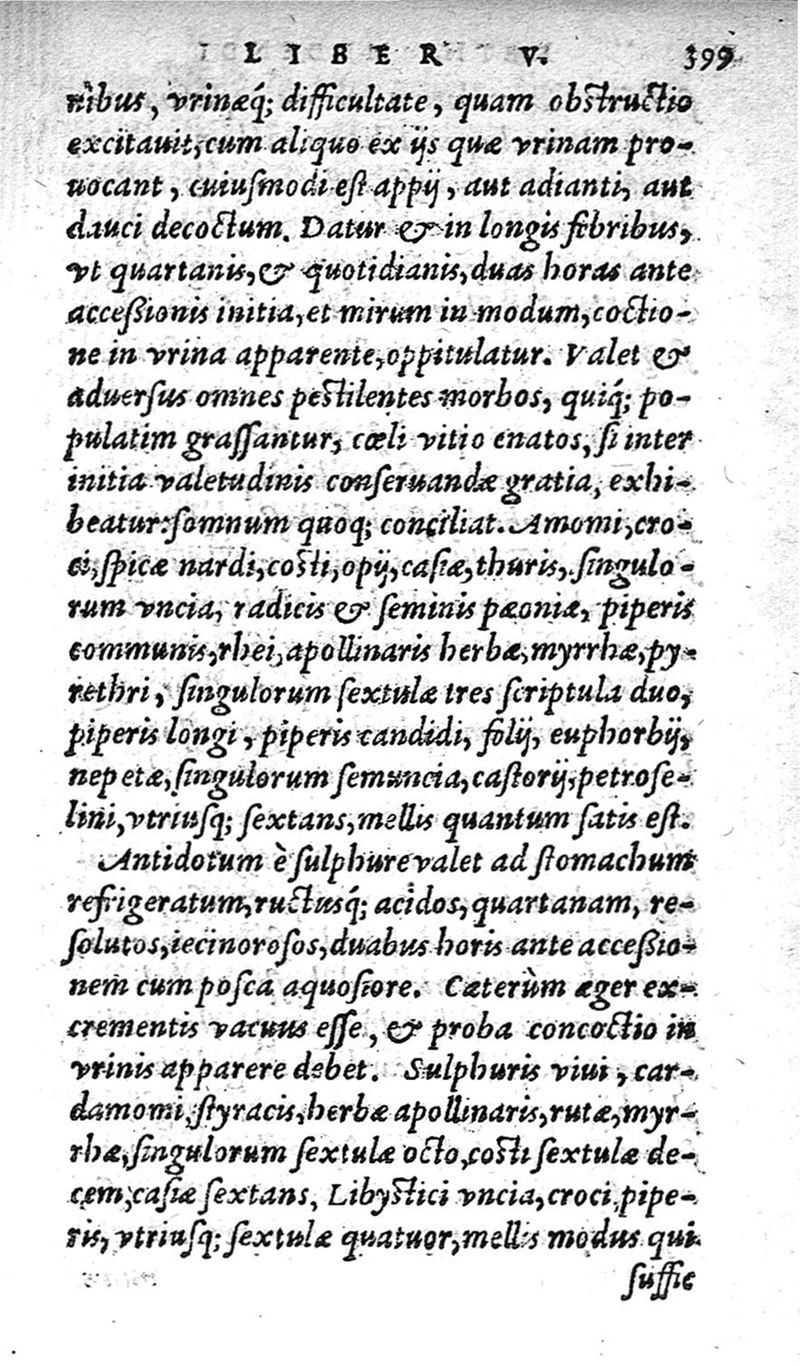 LIBER V. 399
nibus, vrinæq́; difficultate, quam obstructio
excitauit, cum aliquo ex ijs quæ vrinam pro-
uocant, cuiusmodi est appij, aut adianti, aut
dauci decoctum. Datur & in longis febribus,
vt quartanis, & quotidianis, duas horas ante
accessionis initia, et mirum in modum, coctio-
ne in vrina apparente, oppitulatur. Valet &
aduersus omnes pestilentes morbos, quiq́; po-
pulatim grassantur, cœli vitio enatos, si inter
initia valetudinis conseruandæ gratia, exhi-
beatur: somnum quoq; conciliat. Amomi, cro-
ci, spicæ nardi, costi, opij, casiæ, thuris, singulo-
rum vncia, radicis & seminis pæoniæ, piperis
communis, rhei, apollinaris herbæ, myrrhæ, py-
rethri, singulorum sextulæ tres scriptula duo,
piperis longi, piperis candidi, folij, euphorbij,
nepetæ, singulorum semuncia, castorij, petrose-
lini, vtriusq; sextans, mellis quantum satis est.
Antidotum è sulphure valet ad stomachum
refrigeratum, ructusq́; acidos, quartanam, re-
solutos, iecinorosos, duabus horis ante accessio-
nem cum posca aquosiore. Cæterùm æger ex-
crementis vacuus esse, & proba concoctio in
vrinis apparere debet. Sulphuris viui, car-
damomi, styracis, herbæ apollinaris, rutæ, myr-
rhæ, singulorum sextulæ octo, costi sextulæ de-
cem, casiæ sextans, Libystici vncia, croci, pipe-
ris, vtriusq; sextulæ quatuor, mellis modus qui
suffic